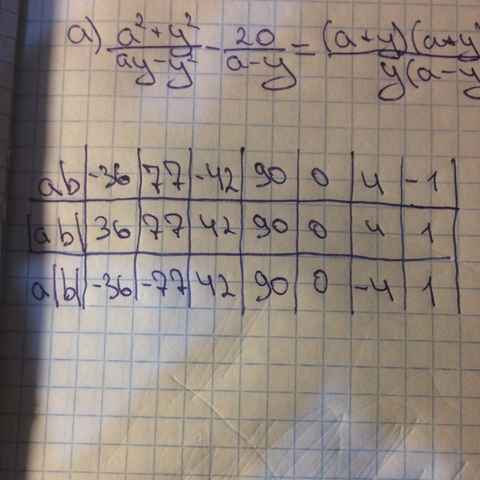 a) a²+y²/ay-y² - 20/a-y = (a+y)(a+y)/y(a-y
ab | -36 | 77 | -42 | 90 | 0 | 4 | -1
|ab| | 36 | 77 | 42 | 90 | 0 | 4 | 1
a|b| | -36 | -77 | 42 | 90 | 0 | -4 | 1